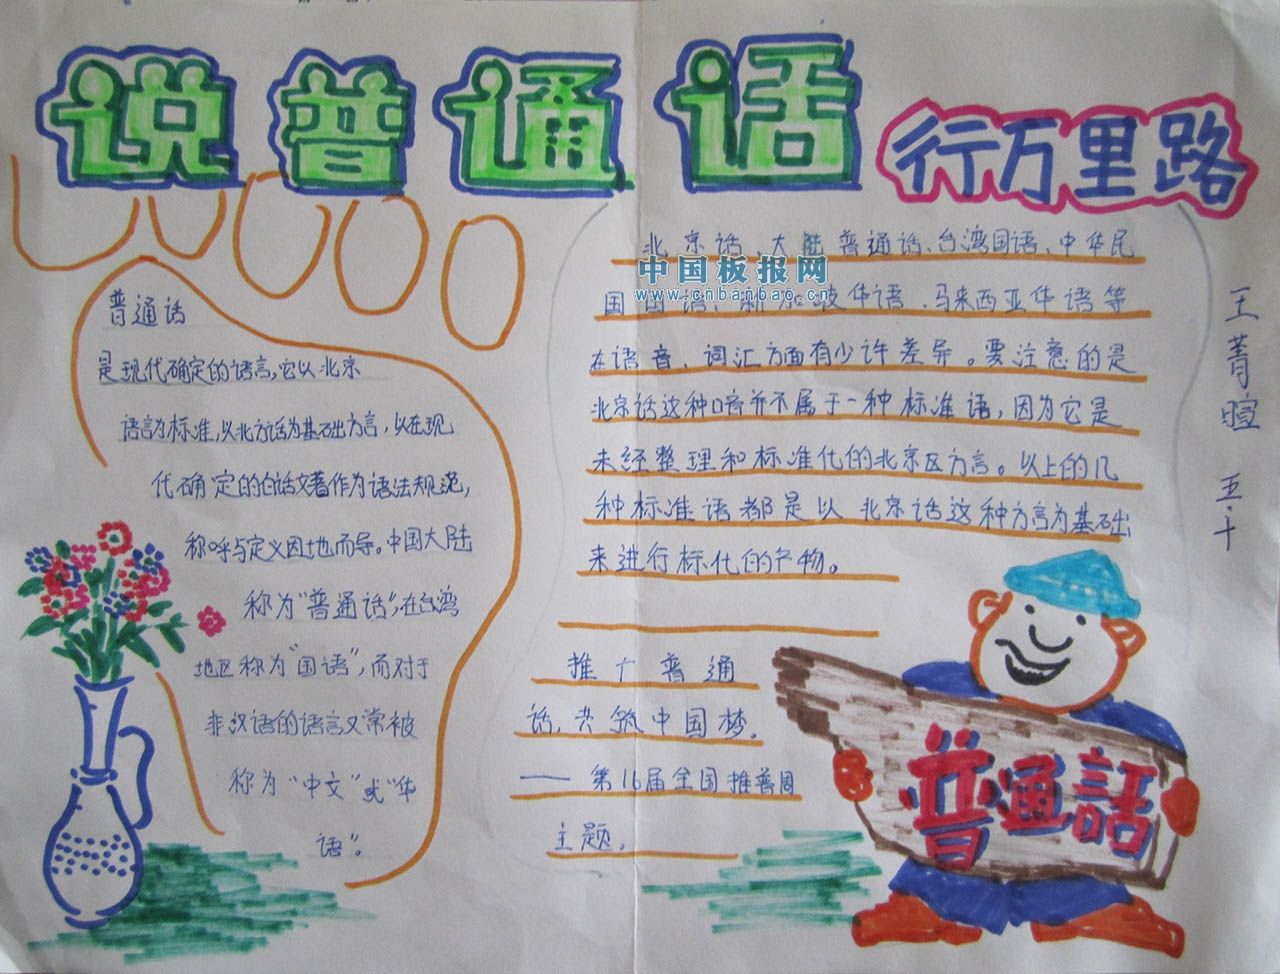 说普通话
行万里路
普通话
是现代确定的语言,它以北京
语言为标准,以北方话为基础方言,以在现
代确定的白话文著作为语法规范,
称呼与定义因地而导。中国大陆
称为“普通话”,在台湾
地区称为“国语”,而对于
非汉语的语言又常被
称为“中文”或“华
语”。
北京话、大陆普通话、台湾国语、中华民
国国语、新加坡华语、马来西亚华语等
在语音、词汇方面有少许差异。要注意的是
北京话这种口音并不属于一种标准语,因为它是
未经整理和标准化的北京区方言。以上的几
种标准语都是以北京话这种方言为基础
来进行标化的产物。
推广普通
话,共筑中国梦。
——第16届全国推普周
主题。
中国板报网
www.cnbanbao.cn
普通話
王菁暄 五·十